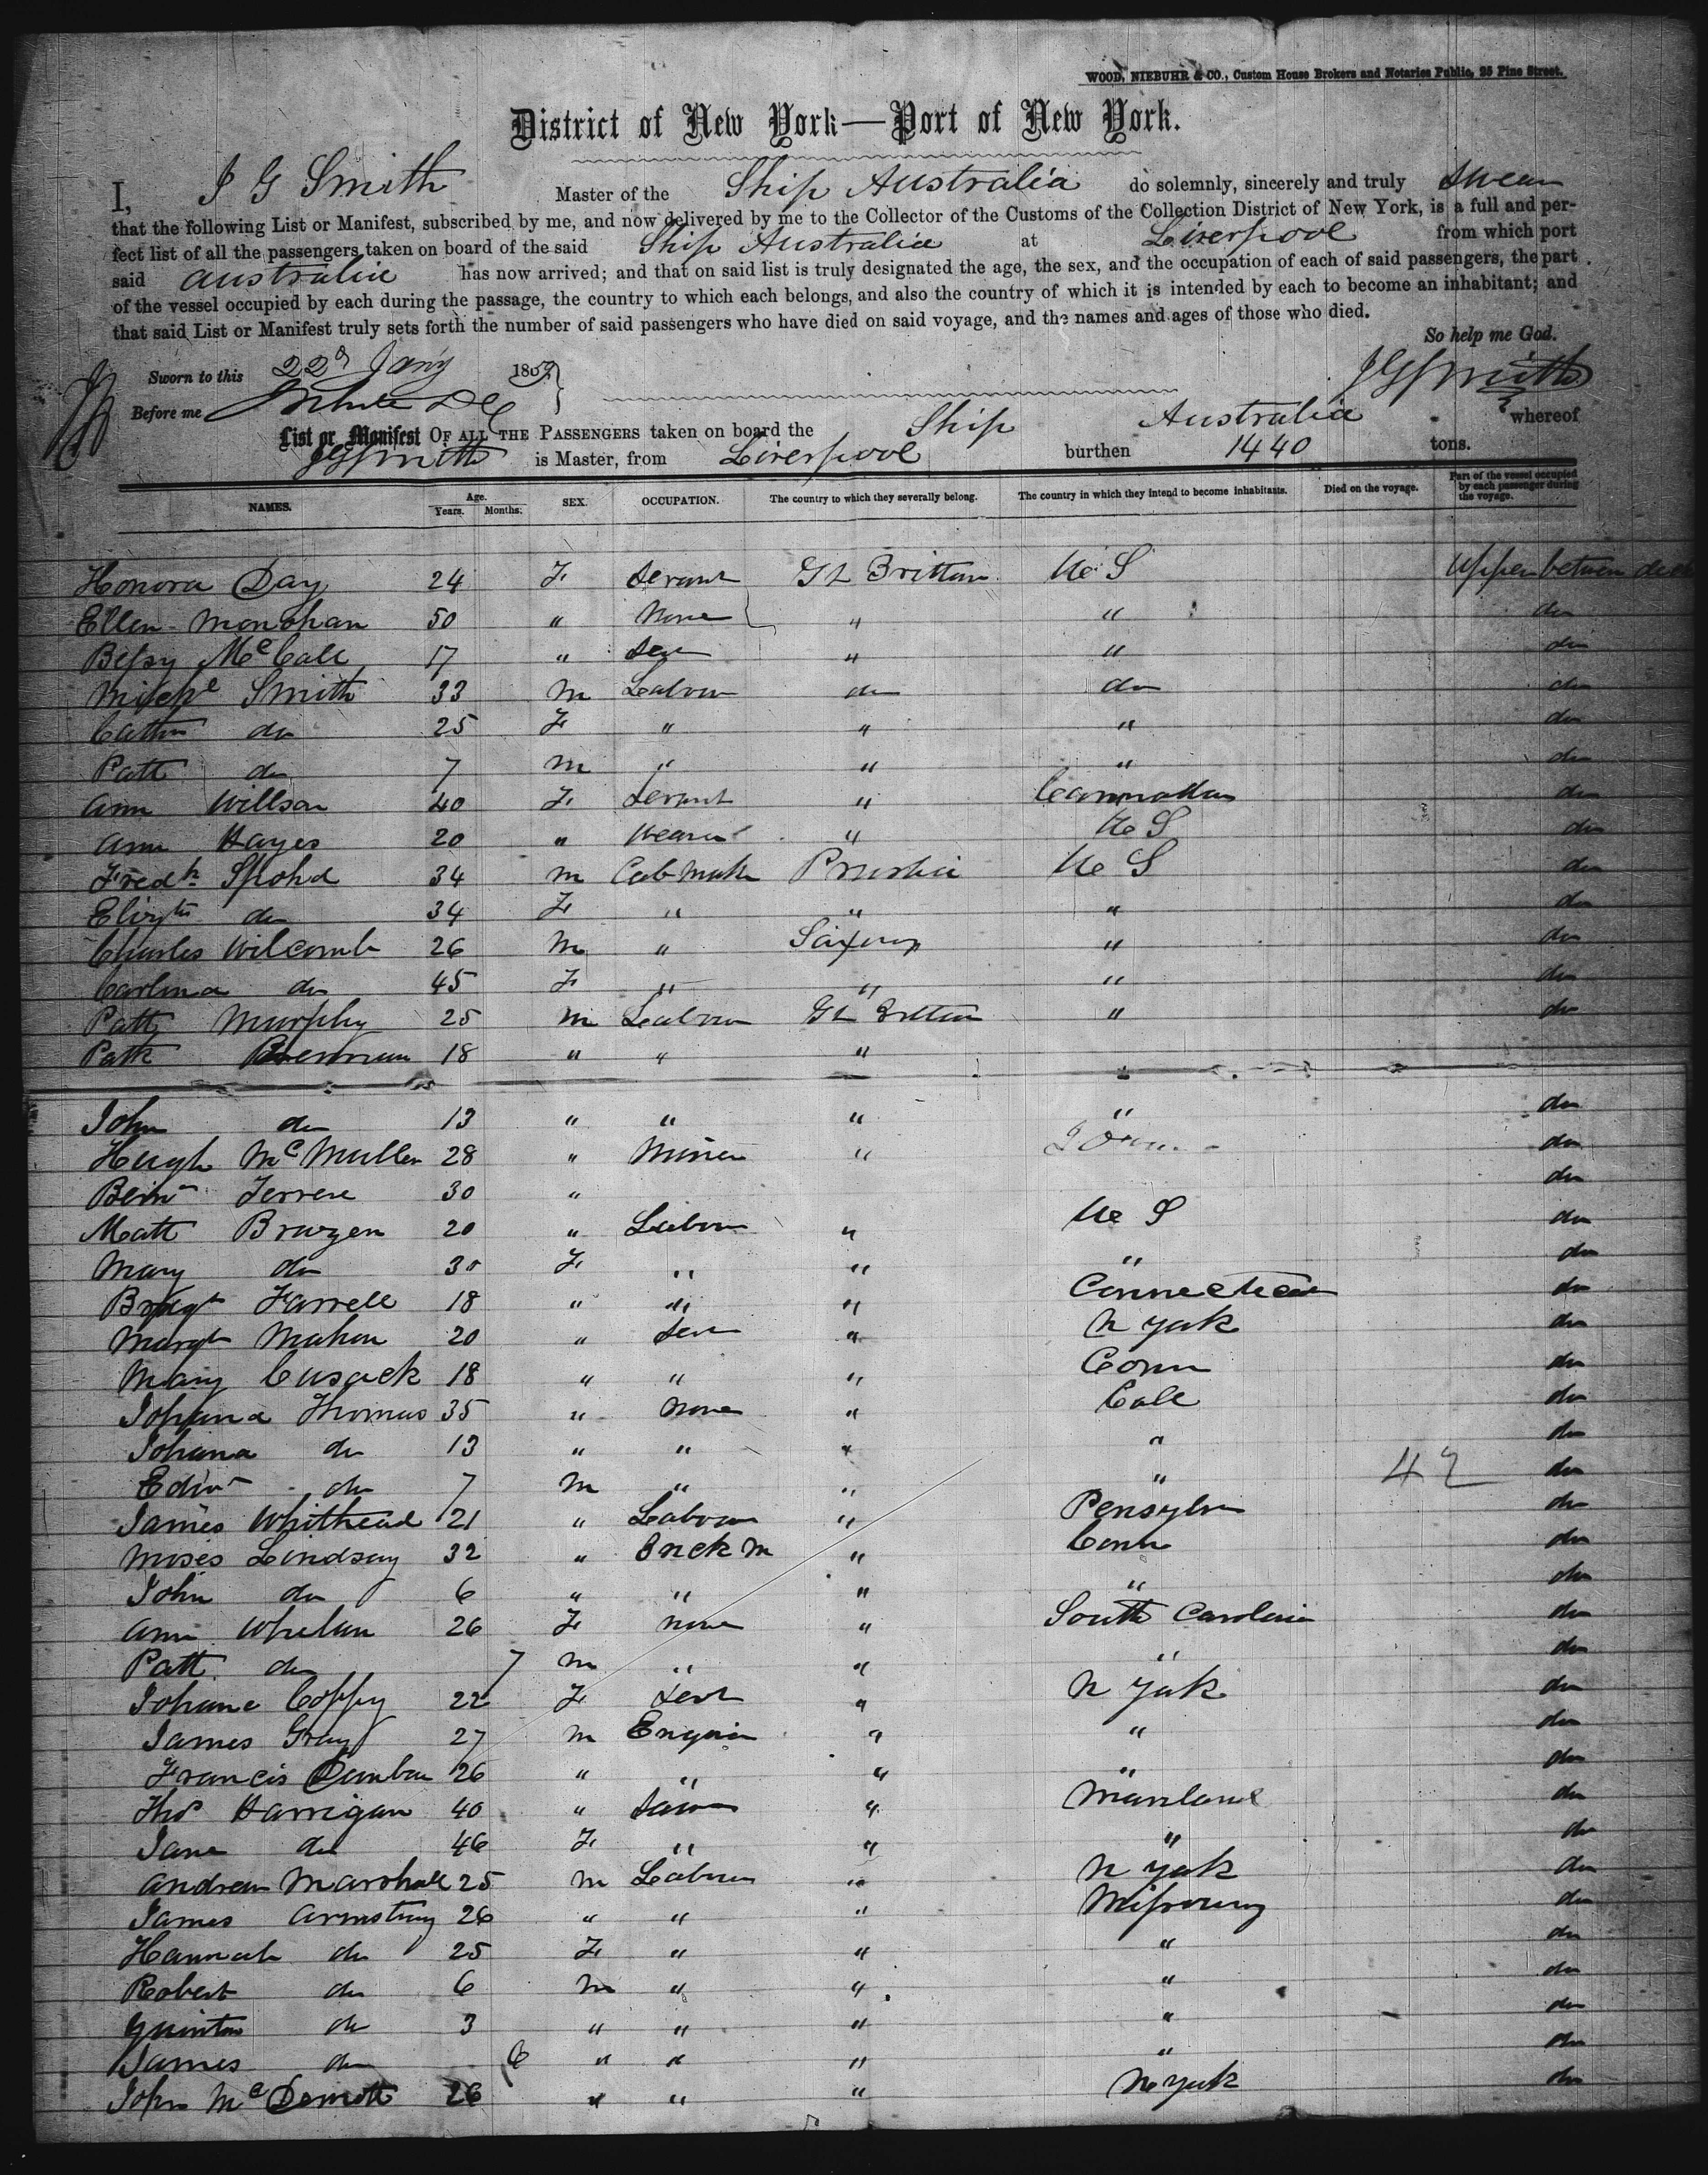 WOOD, NIEBUHR & CO., Custom House Brokers and Notaries Public, 25 Pine Street.
District of New York—Port of New York.
I, J G Smith Master of the Ship Australia do solemnly, sincerely and truly swear
that the following List or Manifest, subscribed by me, and now delivered by me to the Collector of the Customs of the Collection District of New York, is a full and per-
fect list of all the passengers taken on board of the said Ship Australia at Liverpool from which port
said Australia has now arrived; and that on said list is truly designated the age, the sex, and the occupation of each of said passengers, the part
of the vessel occupied by each during the passage, the country to which each belongs, and also the country of which it is intended by each to become an inhabitant; and
that said List or Manifest truly sets forth the number of said passengers who have died on said voyage, and the names and ages of those who died.
So help me God.
Sworn to this 22d Jany 185 JGSmith
Before me
List or Manifest OF ALL THE PASSENGERS taken on board the Ship Australia whereof
JGSmith is Master, from Liverpool burthen 1440 tons.
NAMES. Age. Years. Months. SEX. OCCUPATION. The country to which they severally belong. The country in which they intend to become inhabitants. Died on the voyage. Part of the vessel occupied by each passenger during the voyage.
Honora Day 24 F Servant Gt Brittan U S Upper between deck
Ellen Monohan 50 " None " " do
Bessy McCall 17 " Ser " " do
Michl Smith 33 M Labour do do do
Cathn do 25 F " " " do
Patt do 7 M " " " do
Ann Willson 40 F Servant " do
Ann Hayes 20 " Weaver " U S do
Fredk Spohd 34 M Cab Mak Prusia U S do
Elizth do 34 F " " " do
Charles Wilcomb 26 M " Saxony " do
Carlina do 45 F " " " do
Patt Murphy 25 M Labour Gt Brittan " do
Patk Brennan 18 " " "
John do 13 " " " " do
Hugh McMullen 28 " Miner " do
30 " do
Matt 20 " Labour " U S do
Mary do 30 F " " " do
Bridgt Farrell 18 " " " Connecticut do
Margt Mahon 20 " Ser " N York do
Mary Cusack 18 " " " Conn do
Johana Thomas 35 " None " Call do
Johana do 13 " " " " do
Edwd do 7 M " " " 42 do
James Whithead 21 " Labour " Pensylvn do
Moses Lindsay 32 " Brick M " Conn do
John do 6 " " " " do
Ann Whelan 26 F None " South Carolina do
Patt do 7 M " " " do
Johana Coffy 22 F Serv " N York do
James Gray 27 M Engin " " do
Francis Dunbar 26 " " " " do
Thos Harrigan 40 " " Maryland do
Jane do 46 F " " " do
Andrew Marshall 25 M Labour " N York do
James Armstrong 26 " " " Missoury do
Hannah do 25 F " " " do
Robert do 6 M " " " do
Quinton do 3 " " " " do
James do 6 " " " " do
John McDermott 26 " " " N York do